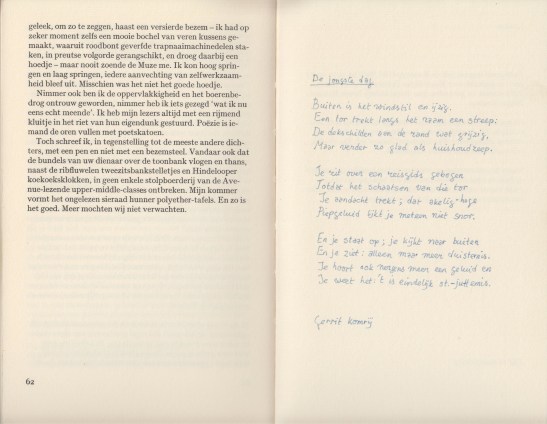 geleek, om zo te zeggen, haast een versierde bezem – ik had op
zeker moment zelfs een mooie bochel van veren kussens ge-
maakt, waaruit roodbont geverfde trapnaaimachinedelen sta-
ken, in preutse volgorde gerangschikt, en droeg daarbij een
hoedje – maar nooit zoende de Muze me. Ik kon hoog sprin-
gen en laag springen, iedere aanvechting van zelfwerkzaam-
heid bleef uit. Misschien was het niet het goede hoedje.
Nimmer ook ben ik de oppervlakkigheid en het boerenbe-
drog ontrouw geworden, nimmer heb ik iets gezegd 'wat ik nu
eens echt meende'. Ik heb mijn lezers altijd met een rijmend
kluitje in het riet van hun eigendunk gestuurd. Poëzie is ie-
mand de oren vullen met poetskatoen.
Toch schreef ik, in tegenstelling tot de meeste andere dich-
ters, met een pen en niet met een bezemsteel. Vandaar ook dat
de bundels van uw dienaar over de toonbank vlogen en thans,
naast de ribfluwelen tweezitsbankstelletjes en Hindelooper
koekoeksklokken, in geen enkele stolpboerderij van de Ave-
nue-lezende upper-middle-classes ontbreken. Mijn kommer
vormt het ongelezen sieraad hunner polyether-tafels. En zo is
het goed. Meer mochten wij niet verwachten.
62
De jongste dag
Buiten is het windstil en ijzig.
Een tor trekt langs het raam een streep:
De dekschilden aan de rand wat grijzig,
Maar verder zo glad als huishoudzeep.
Je zit over een reisgids gebogen
Totdat het schaatsen van die tor
Je aandacht trekt; dat
Piepgeluid lijkt je meteen niet snor.
En je staat op; je kijkt naar buiten
En je ziet: alleen maar meer duisternis.
Je hoort ook nergens meer een geluid en
Je weet het: 't is eindelijk st.-juttemis.
Gerrit Komrij